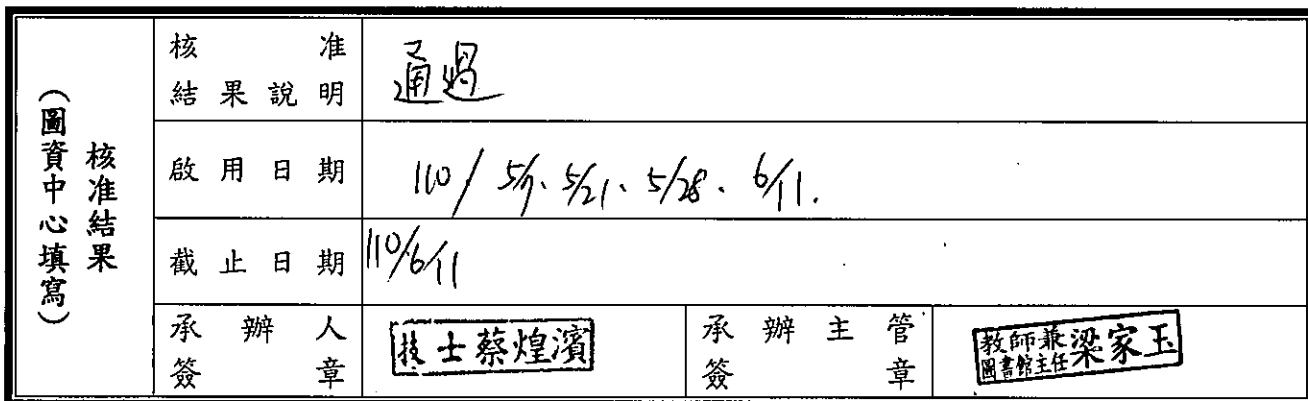 核准結果
(圖資中心填寫)
核准
結果說明
通過
啟用日期
110/5/7、5/21、5/28、6/11.
截止日期
110/6/11
承辦人
簽章
技士蔡煌濱
承辦主管
簽章
教師兼
圖書館主任
梁家玉